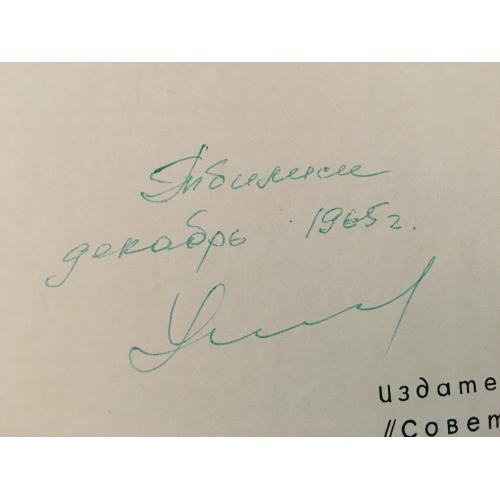 Тбилиси
декабрь 1965г.
издате
//Совет